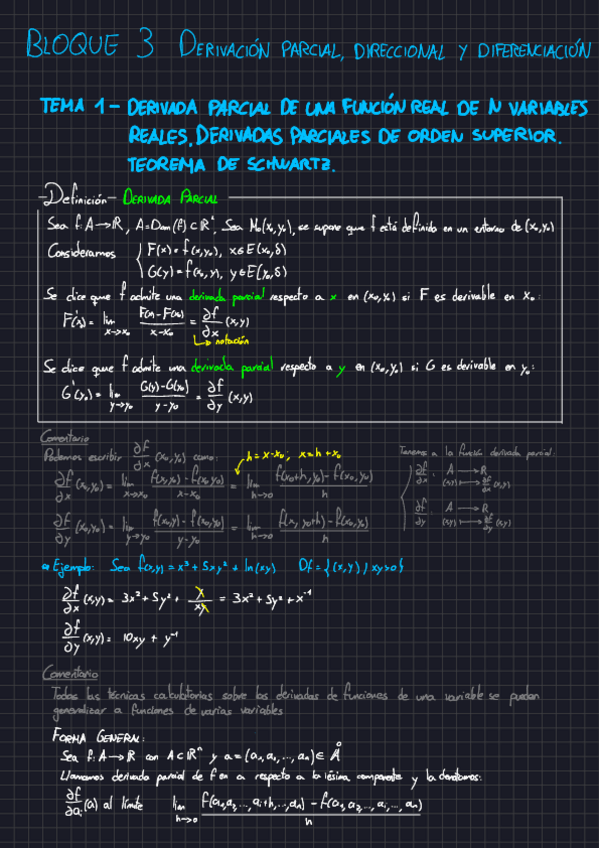 BLOQUE 3 DERIVACIÓN PARCIAL, DIRECCIONAL Y DIFERENCIACIÓN
TEMA 1 - DERIVADA PARCIAL DE UNA FUNCIÓN REAL DE N VARIABLES
REALES, DERIVADAS PARCIALES DE ORDEN SUPERIOR.
TEOREMA DE SCHWARTZ.
Definición - DERIVADA PARCIAL
Sea f: A→ℝ, A=Dom(f)⊂ℝ², Sea M₀(x₀,y₀), se supone que f está definida en un entorno de (x₀,y₀)
Consideramos { F(x)=f(x,y₀), x∈E(x₀,δ)
G(y)=f(x₀,y), y∈E(y₀,δ)
Se dice que f admite una derivada parcial respecto a x en (x₀,y₀) si F es derivable en x₀:
F'(x₀)= lim x→x₀ (F(x)-F(x₀))/(x-x₀) = ∂f/∂x (x,y)
↳ notación
Se dice que f admite una derivada parcial respecto a y en (x₀,y₀) si G es derivable en y₀:
G'(y₀)= lim y→y₀ (G(y)-G(y₀))/(y-y₀) = ∂f/∂y (x,y)
Comentario
Podemos escribir ∂f/∂x (x₀,y₀) como:
h=x-x₀; x=h+x₀
∂f/∂x (x₀,y₀) = lim x→x₀ (f(x,y₀)-f(x₀,y₀))/(x-x₀) = lim h→0 (f(x₀+h,y₀)-f(x₀,y₀))/h
∂f/∂y (x₀,y₀) = lim y→y₀ (f(x₀,y)-f(x₀,y₀))/(y-y₀) = lim h→0 (f(x₀,y₀+h)-f(x₀,y₀))/h
Tenemos a la función derivada parcial:
{ ∂f/∂x : A → ℝ
(x,y) ⟼ ∂f/∂x (x,y)
∂f/∂y : A → ℝ
(x,y) ⟼ ∂f/∂y (x,y)
Ejemplo: Sea f(x,y) = x³ + 5xy² + ln(xy) Df = {(x,y) / xy>0}
∂f/∂x (x,y) = 3x² + 5y² + y/xy = 3x² + 5y² + x⁻¹
∂f/∂y (x,y) = 10xy + y⁻¹
Comentario
Todas las técnicas calculatorias sobre las derivadas de funciones de una variable se pueden
generalizar a funciones de varias variables
FORMA GENERAL:
Sea f: A→ℝ con A⊂ℝⁿ y a=(a₁,a₂,...,aₙ)∈Å
Llamamos derivada parcial de f en a respecto a la iésima componente y la denotamos:
∂f/∂aᵢ (a) al límite lim h→0 (f(a₁,a₂,...,aᵢ+h,...,aₙ) - f(a₁,a₂,...,aᵢ,...,aₙ))/h